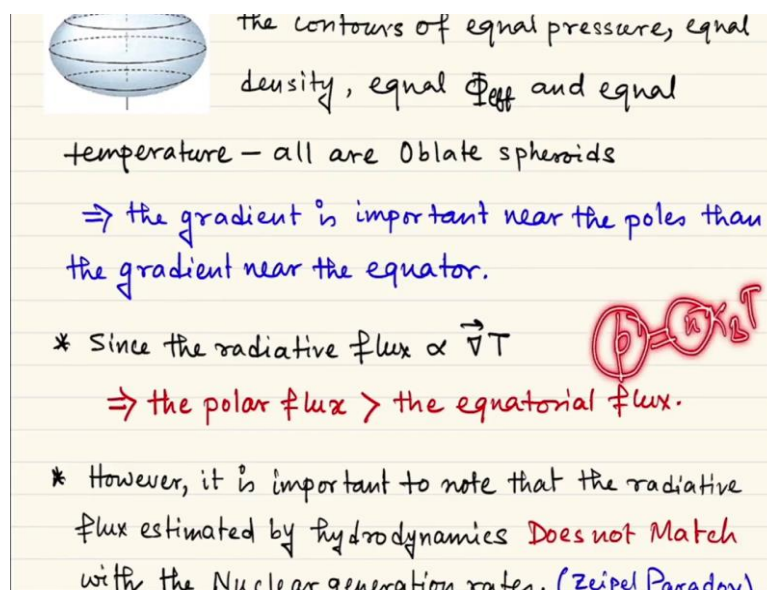 the contours of equal pressure, equal
density, equal Φeff and equal
temperature – all are Oblate spheroids
⇒ the gradient is important near the poles than
the gradient near the equator.
p = n K_B T
* Since the radiative flux ∝ ∇⃗T
⇒ the polar flux > the equatorial flux.
* However, it is important to note that the radiative
flux estimated by hydrodynamics Does not Match
with the Nuclear generation rates. (Zeipel Paradox)